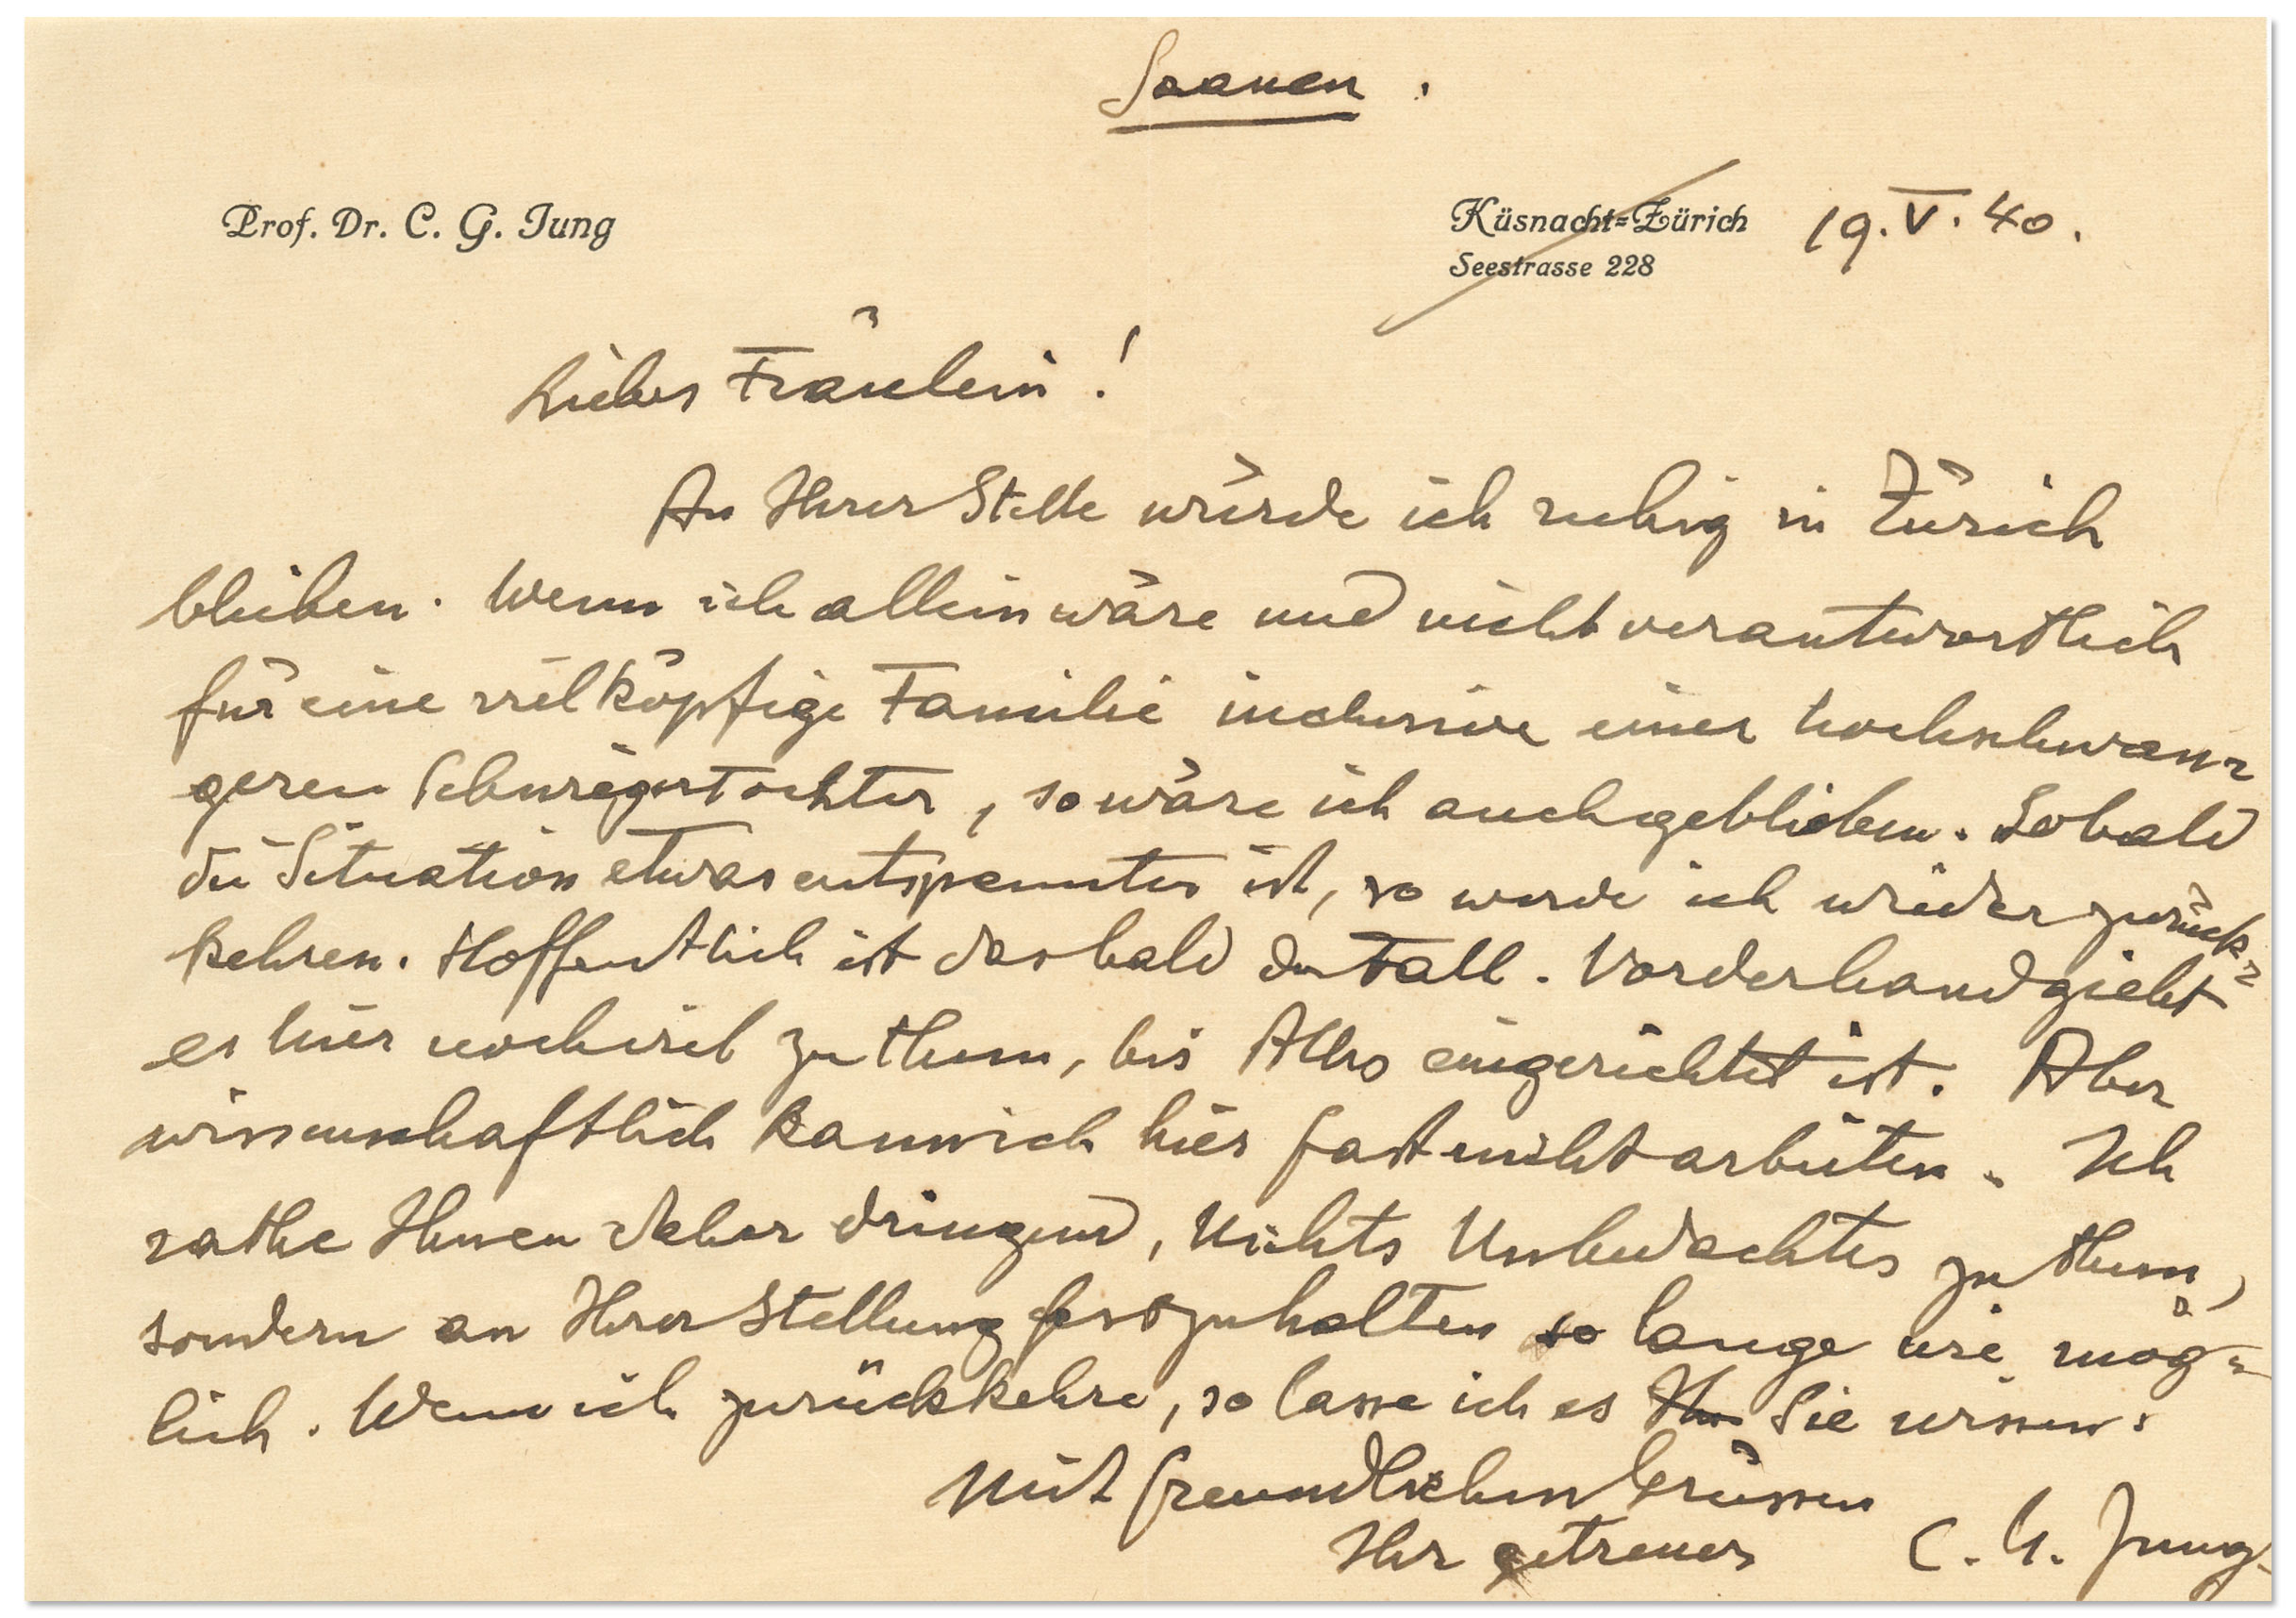 Saanen.
Prof. Dr. C. G. Jung
Küsnacht=Zürich 19.V.40.
Seestrasse 228
Liebes Fräulein!
An Ihrer Stelle würde ich ruhig in Zürich
bleiben. Wenn ich allein wäre und nicht verantwortlich
für eine vielköpfige Familie inclusive einer hochschwan=
geren Schwiegertochter, so wäre ich auch geblieben. Sobald
die Situation etwas entspannter ist, so werde ich wieder zurück=
kehren. Hoffentlich ist das bald der Fall. Vorderhand giebt
es hier noch viel zu thun, bis Alles eingerichtet ist. Aber
wissenschaftlich kann ich hier fast nicht arbeiten. Ich
rathe Ihnen daher dringend, Nichts Unbedachtes zu thun,
sondern an Ihrer Stellung festzuhalten so lange wie mög=
lich. Wenn ich zurückkehre, so lasse ich es Ihn Sie wissen.
Mit freundlichen Grüssen
Ihr getreuer C. G. Jung.